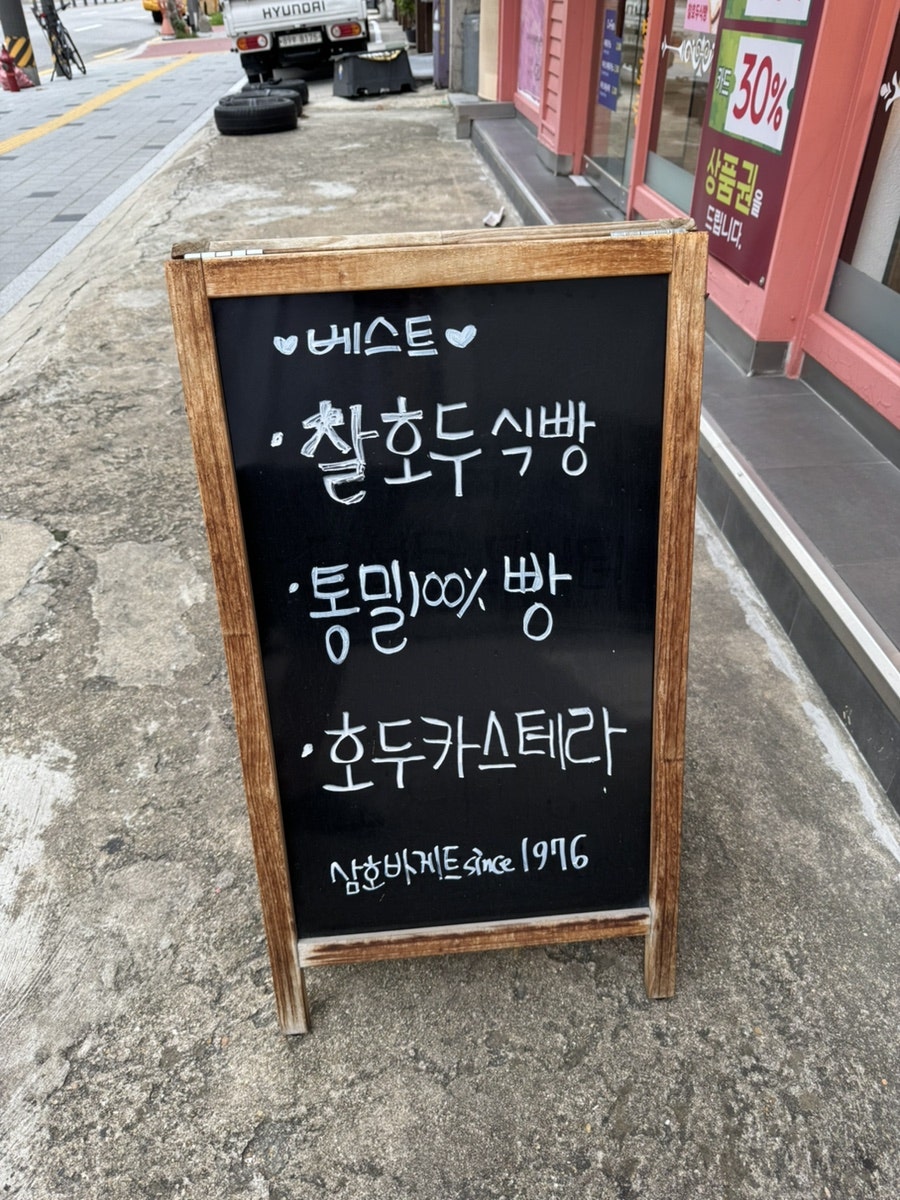 HYUNDAI
카드
30%
상품권을
드립니다.
♥베스트♥
· 찰호두식빵
· 통밀100% 빵
· 호두카스테라
삼호바게트since 1976